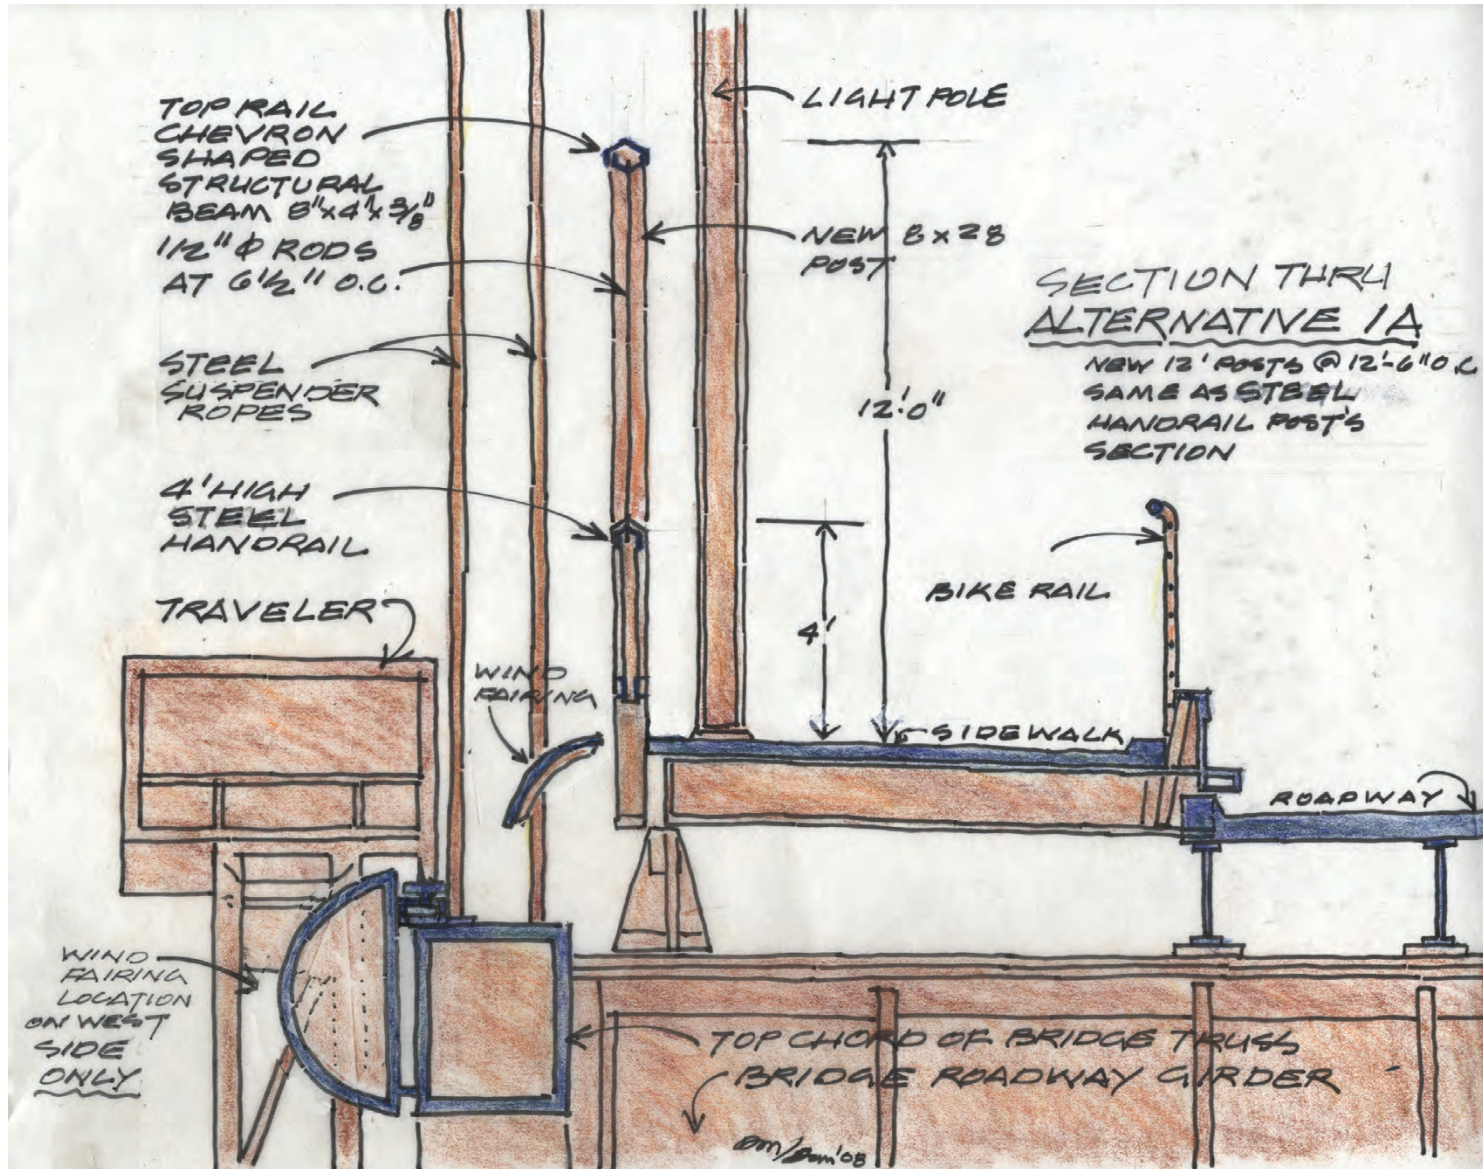 TOP RAIL
CHEVRON
SHAPED
STRUCTURAL
BEAM 8"x4"x3/8"
1/2" Φ RODS
AT 6 1/2" O.C.
STEEL
SUSPENDER
ROPES
4' HIGH
STEEL
HANDRAIL
TRAVELER
WIND
FAIRING
WIND
FAIRING
LOCATION
ON WEST
SIDE
ONLY
LIGHT POLE
NEW 8 x 28
POST
12'.0"
4'
SECTION THRU
ALTERNATIVE 1A
NEW 12' POSTS @ 12'-6" O.C
SAME AS STEEL
HANDRAIL POST'S
SECTION
BIKE RAIL
SIDEWALK
ROADWAY
TOP CHORD OF BRIDGE TRUSS
BRIDGE ROADWAY GIRDER
'08